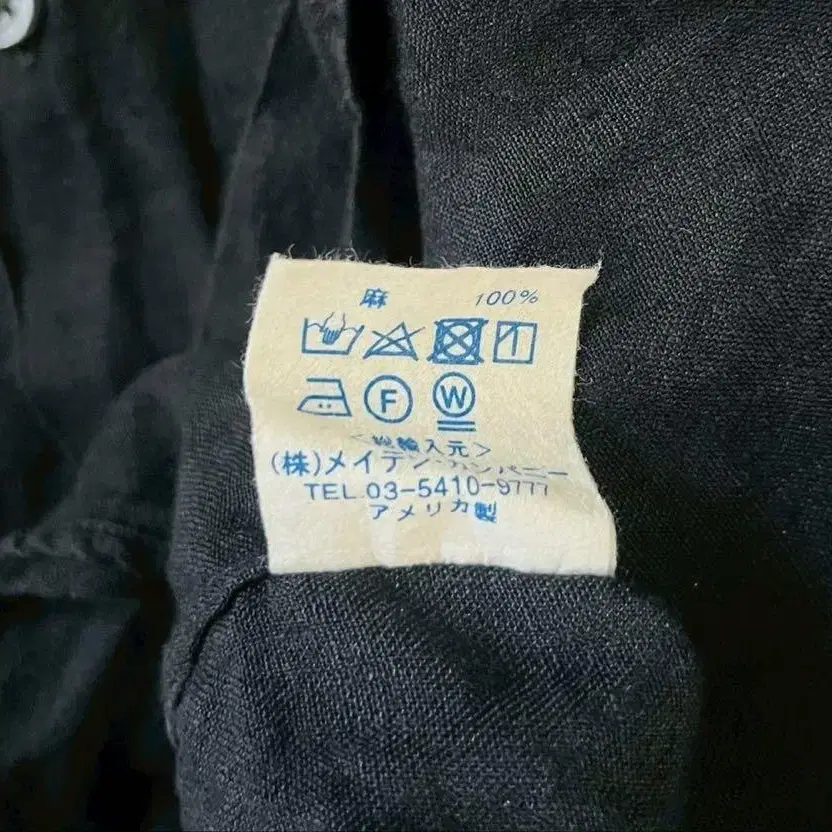 麻 100%
F W
<総輸入元>
(株)メイデン・カンパニー
TEL.03-5410-9777
アメリカ製